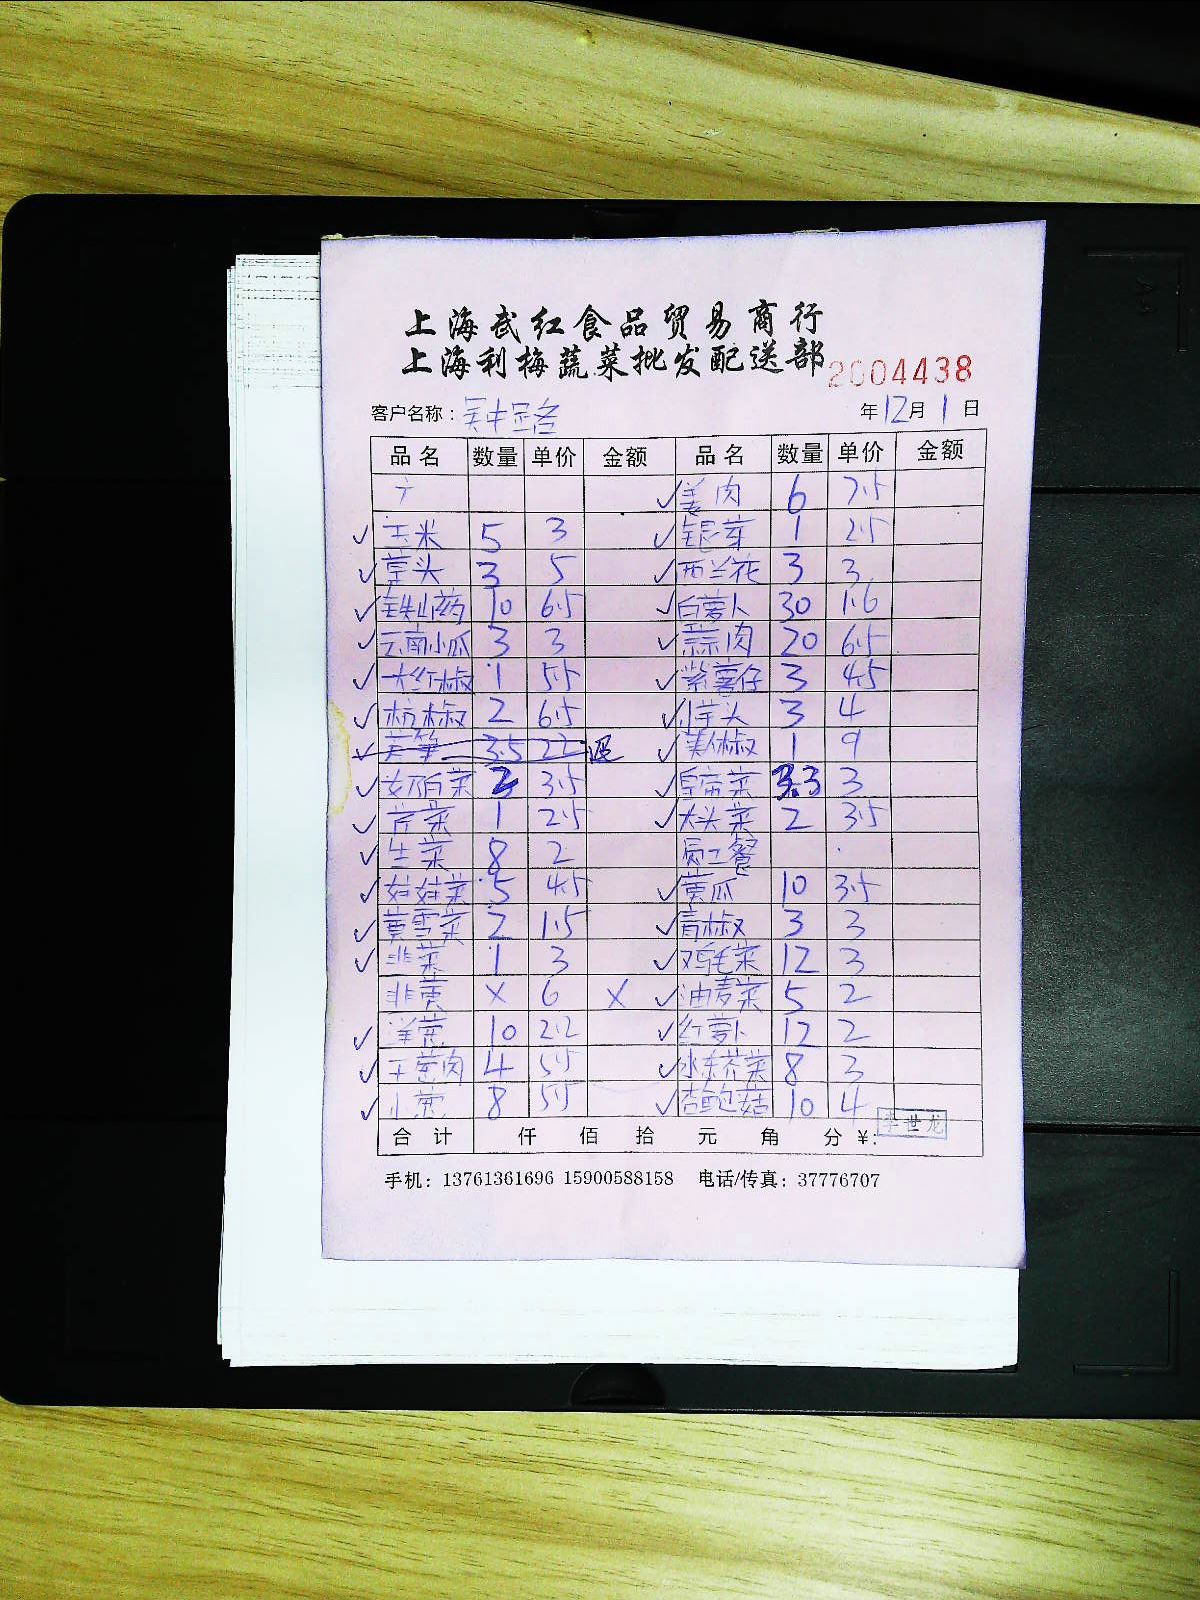 上海武红食品贸易商行
上海利梅蔬菜批发配送部 2004438
客户名称： 年12月1日
品名 数量 单价 金额 品名 数量 单价 金额
✓姜肉 6 7.5
✓玉米 5 3 ✓银芽 1 2.5
✓草头 3 5 ✓西兰花 3 3
✓铁山药 10 6.5 ✓白萝卜 30 1.6
✓云南小瓜 3 3 ✓蒜肉 20 6.5
✓大红椒 1 5.5 ✓紫薯仔 3 4.5
✓杭椒 2 6.5 ✓小芋头 3 4
✓ 3.5 22 退 ✓美人椒 1 9
✓奶白菜 3.5 ✓皇帝菜 3.3 3
✓芹菜 1 2.5 ✓大头菜 2 3.5
✓生菜 8 2 员工餐
✓娃娃菜 5 4.5 ✓黄瓜 10 3.5
✓ 2 1.5 ✓青椒 3 3
✓韭菜 1 3 ✓鸡毛菜 12 3
韭黄 X 6 X ✓油麦菜 5 2
✓洋葱 10 2.2 ✓红萝卜 12 2
✓干葱肉 4 5.5 ✓水东芥菜 8 3
✓小葱 8 5.5 ✓杏鲍菇 10 4
合计 仟 佰 拾 元 角 分 ¥: 李世龙
手机：13761361696 15900588158 电话/传真：37776707